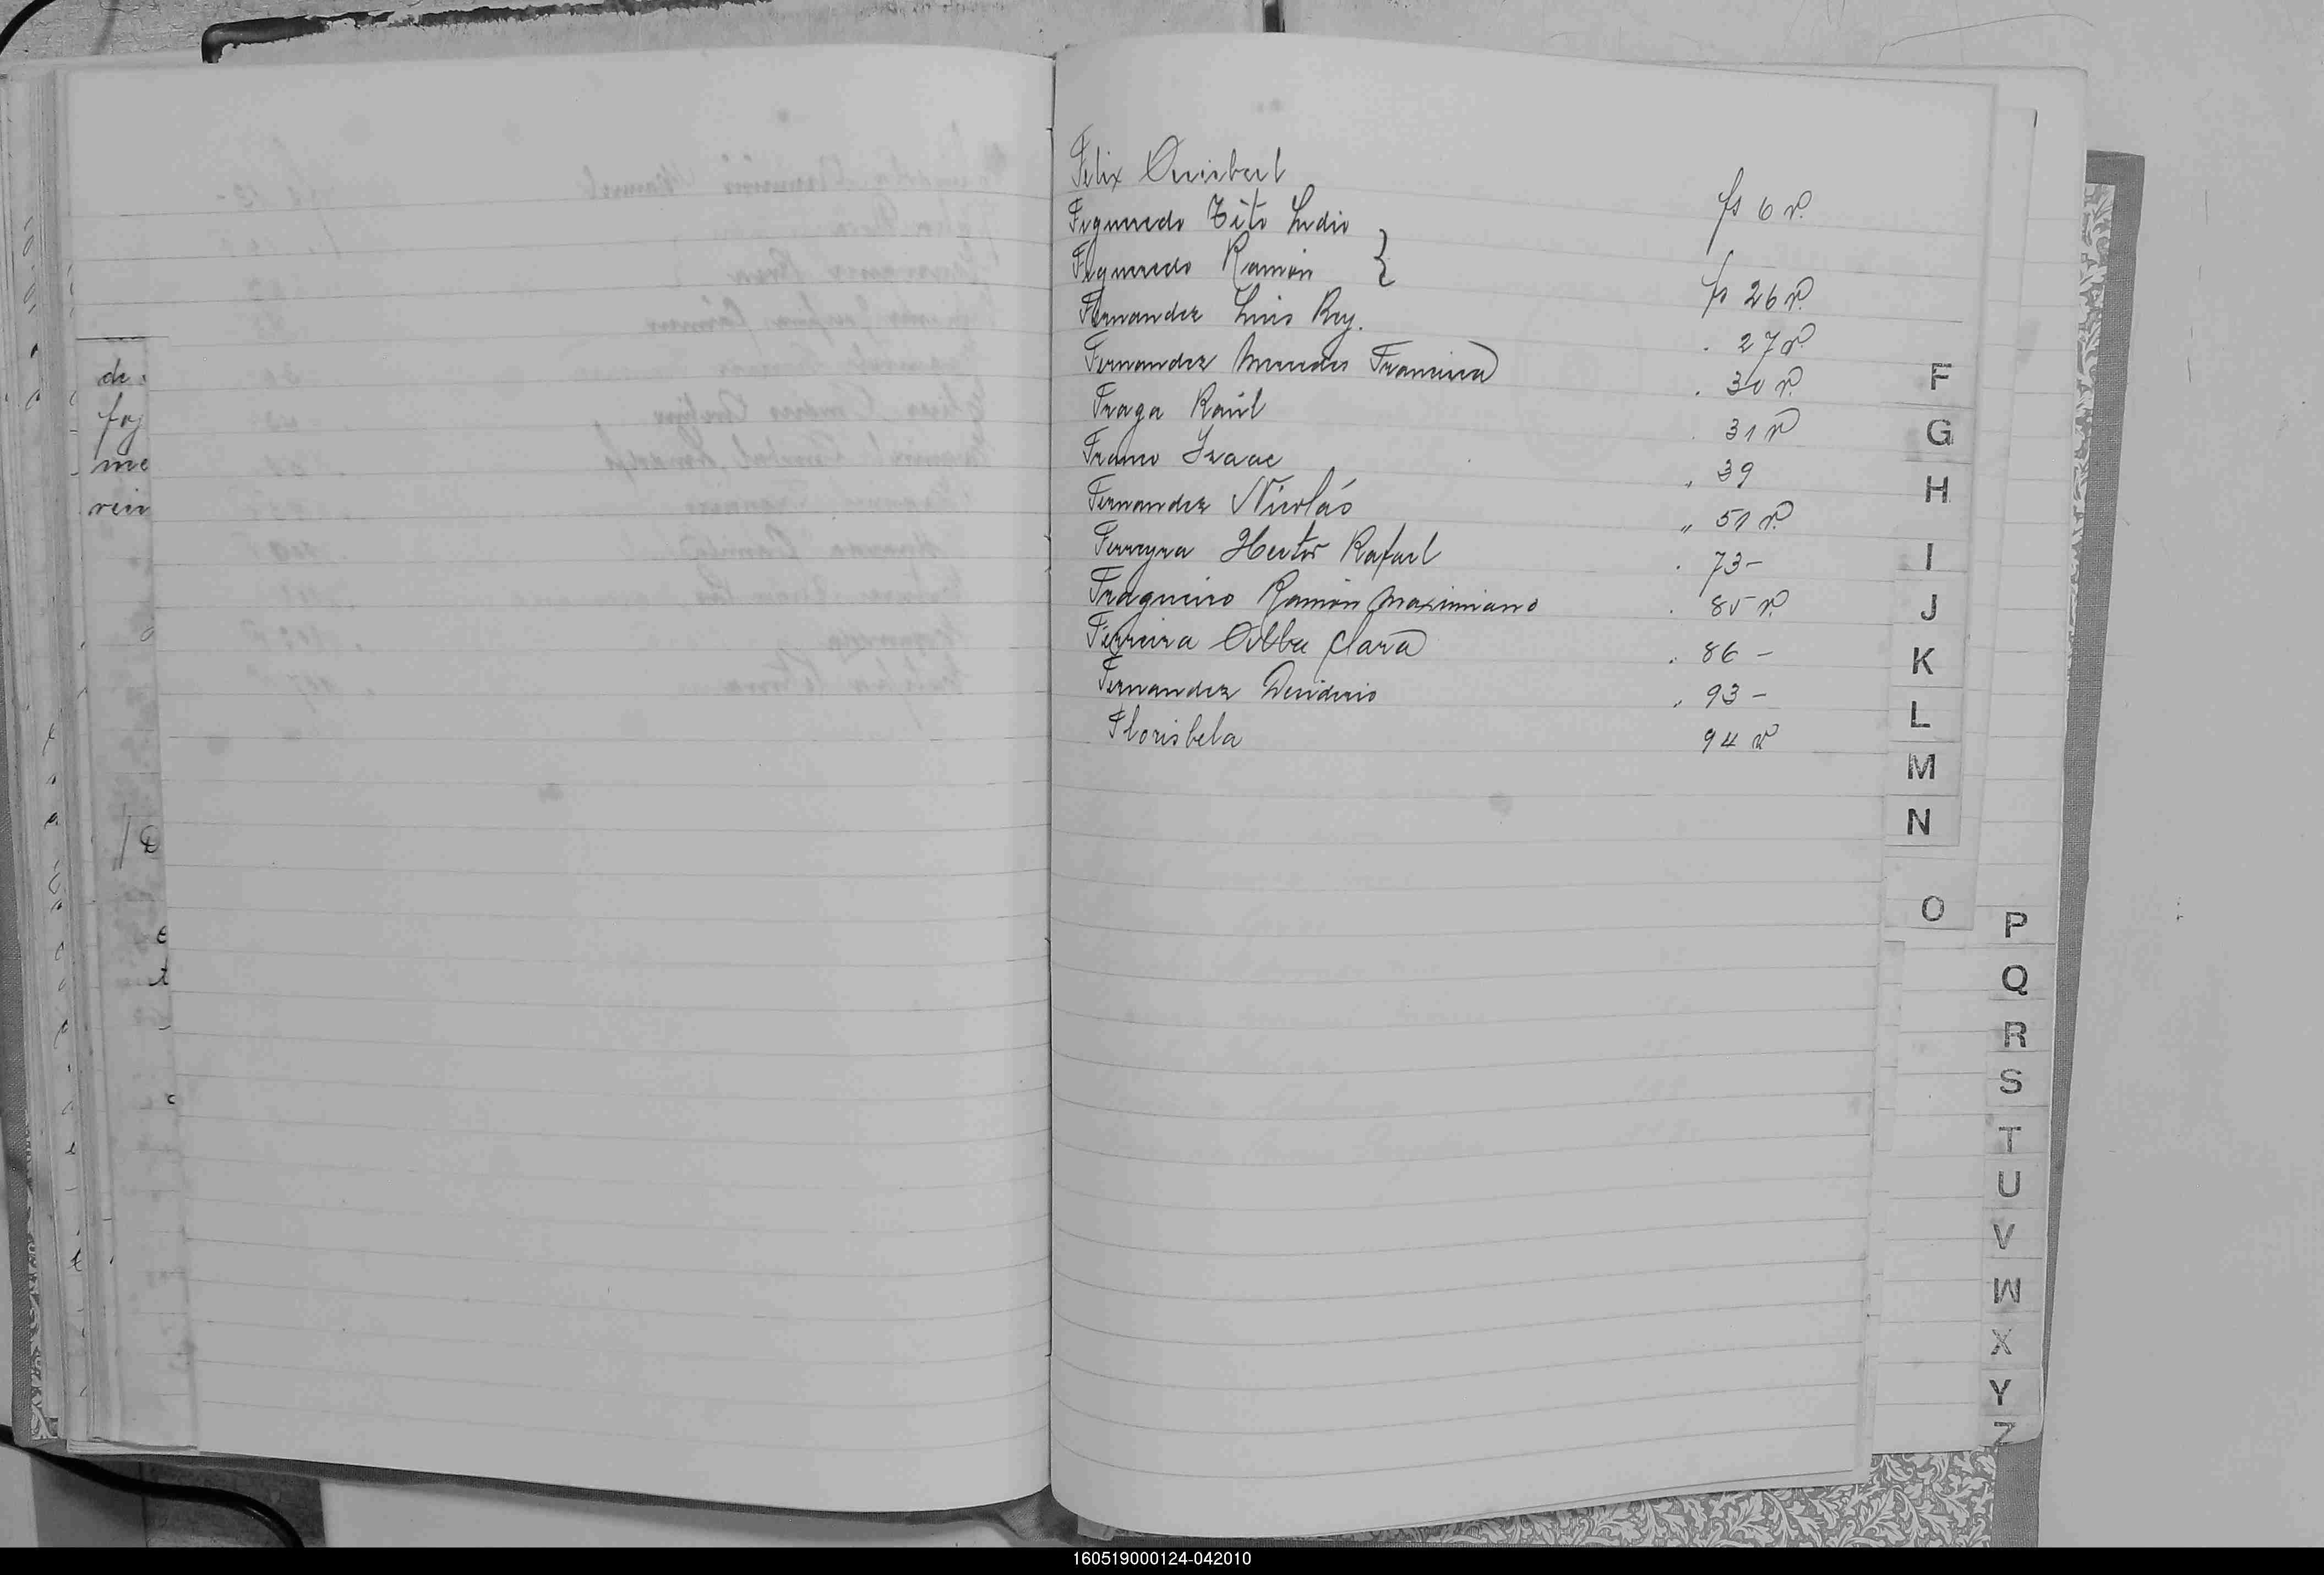 Felix
fs 6 v.
Figueredo Tito Ludio
Figueredo Ramón }
fs 26 v.
Fernandez Luis Rey.
. 27 v.
Fernandez Mercedes Francisca
. 30 v.
Fraga Raúl
. 31 v
Franco Isaac
" 39
Fernandez Nicolás
" 51 v.
Ferreyra Hector Rafael
. 73 -
Fragueiro Ramón Maximiano
. 85 v.
Ferreira Alba Clara
. 86 -
Fernandez Desiderio
. 93 -
Florisbela
94 v
de
foj
me
rein
F
G
H
I
J
K
L
M
N
O
P
Q
R
S
T
U
V
W
X
Y
Z
160519000124-042010